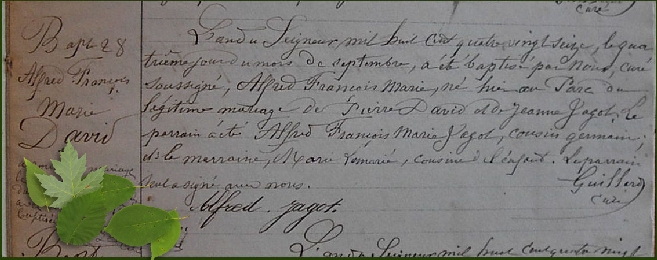 Curé
Bapt. 28
Alfred François
Marie
David
L'an du Seigneur, mil huit cent quatre vingt seize, le qua
trième jour du mois de septembre, a été baptisé par Nous, curé
soussigné, Alfred François Marie, né hier au Parc du
légitime mariage de Pierre David et de Jeanne Jagot, le
parrain a été Alfred François Marie Jagot, cousin germain
et la marraine, Marie, cousine de l'enfant. Le parrain
seul a signé avec nous.
Guillard
Curé
Alfred Jagot.
Bapt
L'an du Seigneur mil huit cent quatre vingt